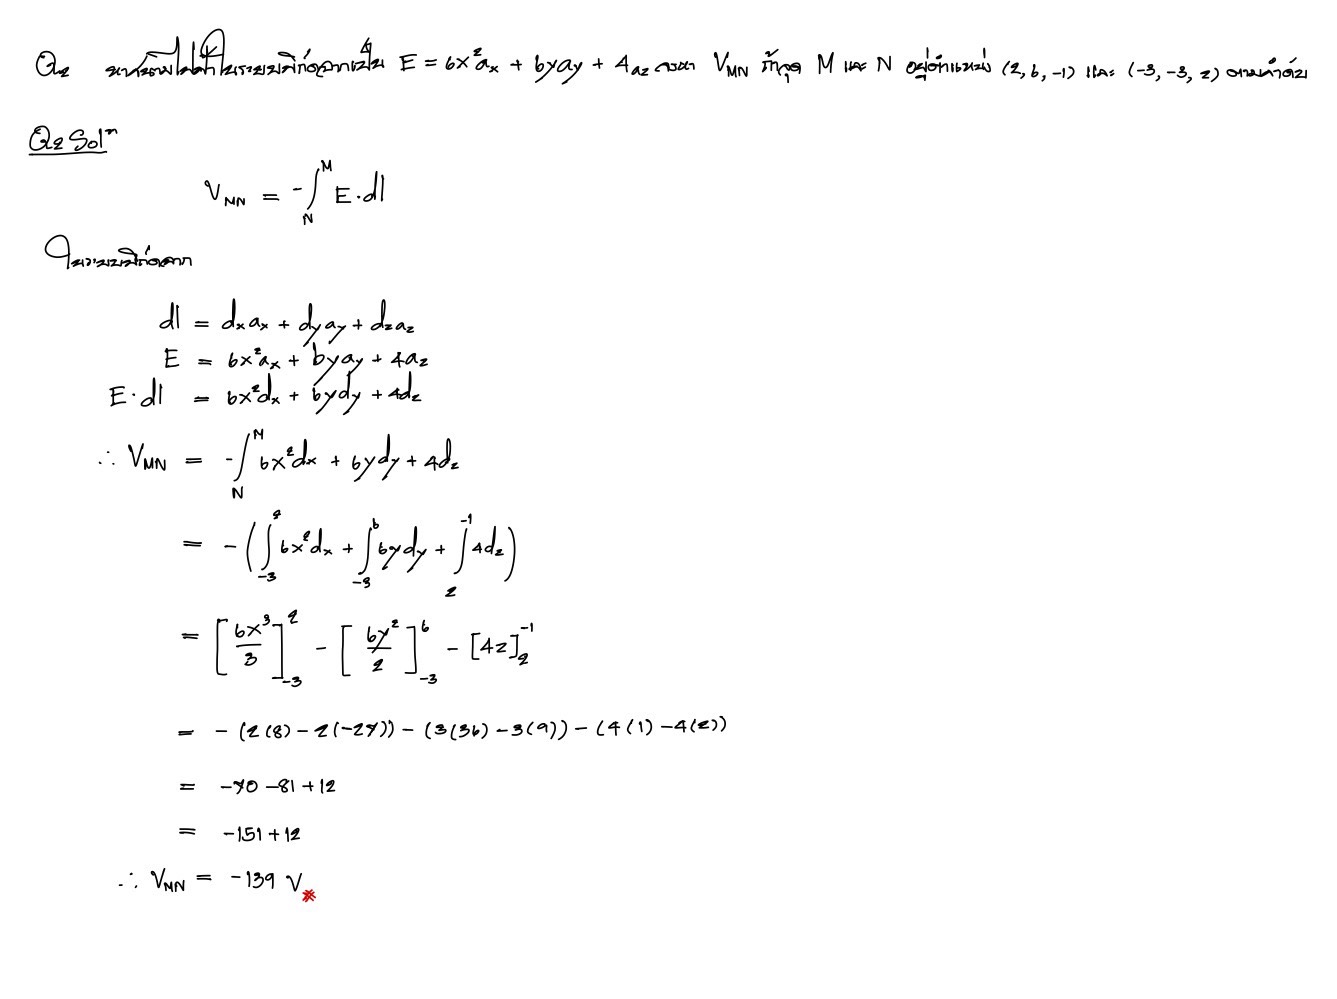 Q2 สนามไฟฟ้าในระบบพิกัดฉากเป็น E = 6x²aₓ + 6yay + 4az จงหา VMN ถ้าจุด M และ N อยู่ตำแหน่ง (2, 6, -1) และ (-3, -3, 2) ตามลำดับ
Q2 Solⁿ
VMN = -∫_N^M E · dl
ในระบบพิกัดฉาก
dl = dxax + dyay + dzaz
E = 6x²ax + 6yay + 4az
E · dl = 6x²dx + 6ydy + 4dz
∴ VMN = -∫_N^M 6x²dx + 6ydy + 4dz
= -(∫_{-3}^{2} 6x²dx + ∫_{-3}^{6} 6ydy + ∫_{2}^{-1} 4dz)
= [6x³/3]_{-3}^{2} - [6y²/2]_{-3}^{6} - [4z]_{2}^{-1}
= - (2(8) - 2(-27)) - (3(36) - 3(9)) - (4(1) - 4(2))
= -70 -81 +12
= -151 + 12
∴ VMN = -139 V *